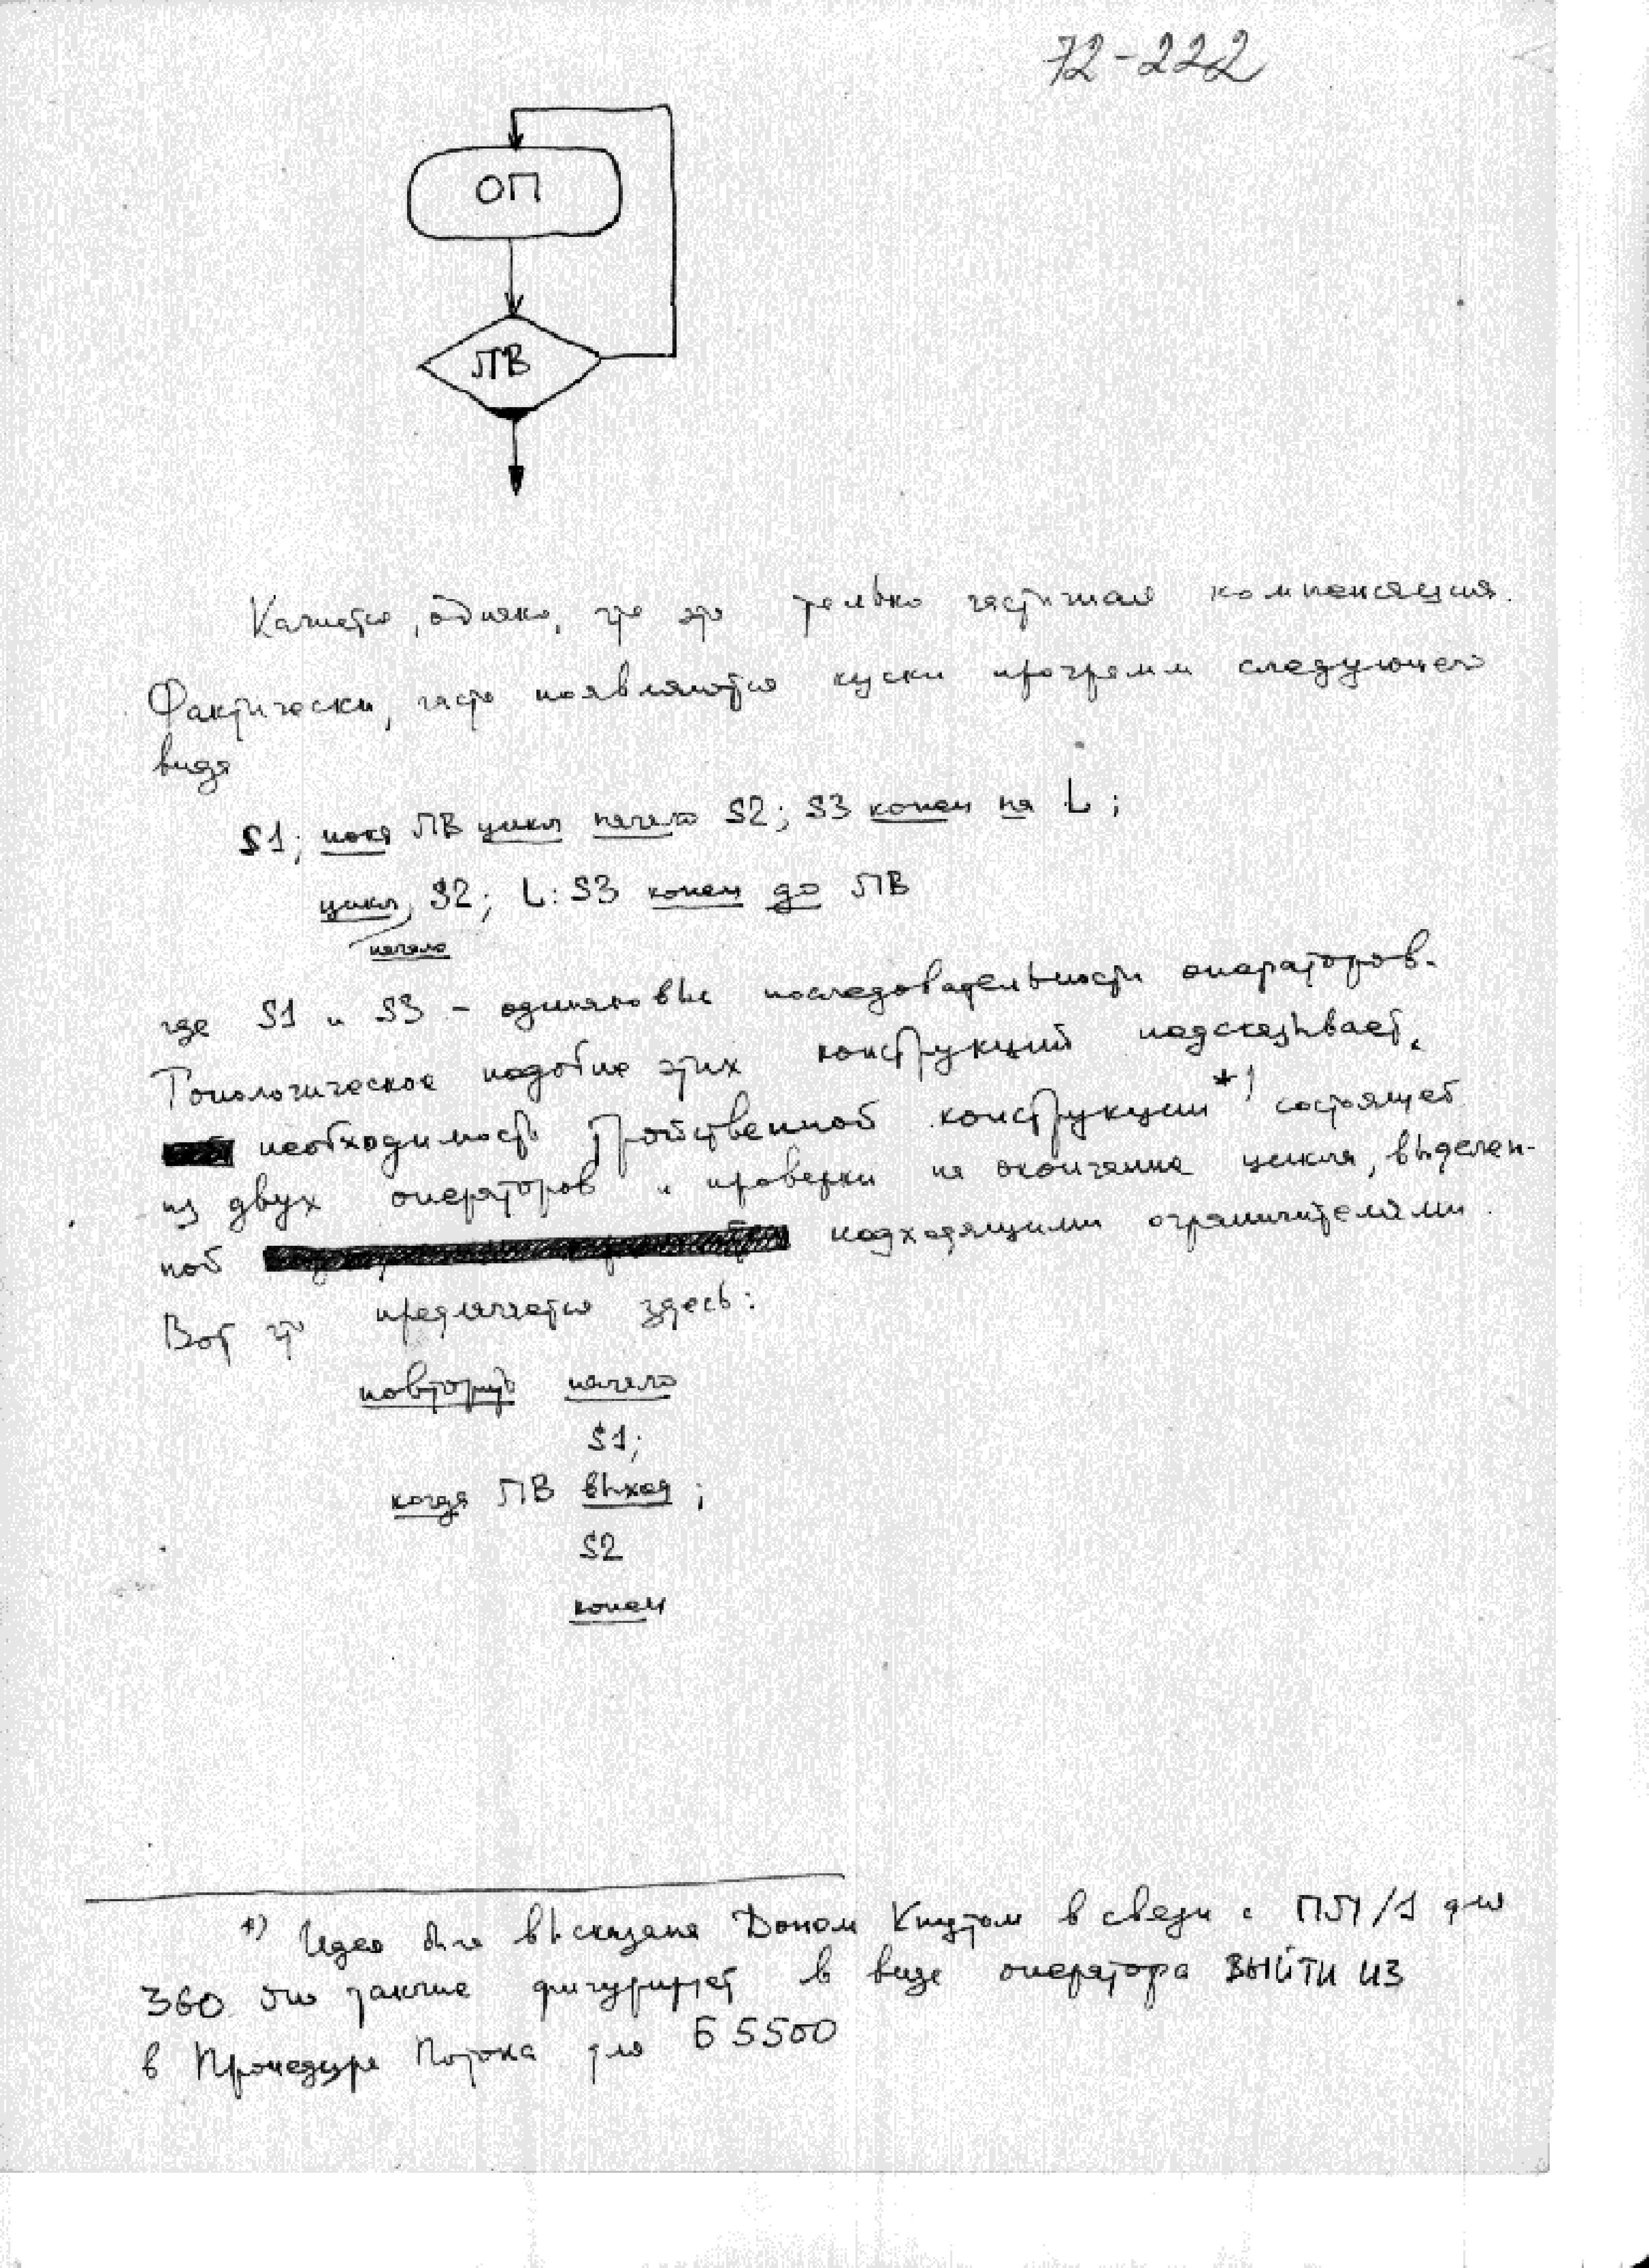 72-222
ОП
ЛВ
Кажется, однако, что это только частичная компенсация.
Фактически, часто появляются куски программ следующего
вида
S1; пока ЛВ цикл начало S2; S3 конец на L;
цикл S2; L: S3 конец до ЛВ
начало
где S1 и S3 - одинаковые последовательности операторов.
Топологическое подобие этих конструкций подсказывает
необходимость тройственной конструкции *) состоящей
из двух операторов и проверки на окончание цикла, выделен-
ной подходящими ограничителями.
Вот что предлагается здесь:
повторить начало
S1;
когда ЛВ выход;
S2
конец
*) Идея была высказана Доном Кнутом в связи с ПЛ/1 для
360 она также фигурирует в виде оператора ВЫЙТИ ИЗ
в Процедуре Потока для Б 5500